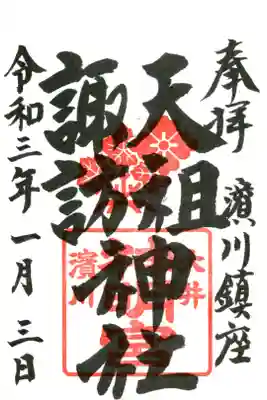 奉拝
濱川鎮座
天祖神社
諏訪
令和三年一月三日
大井
濱川